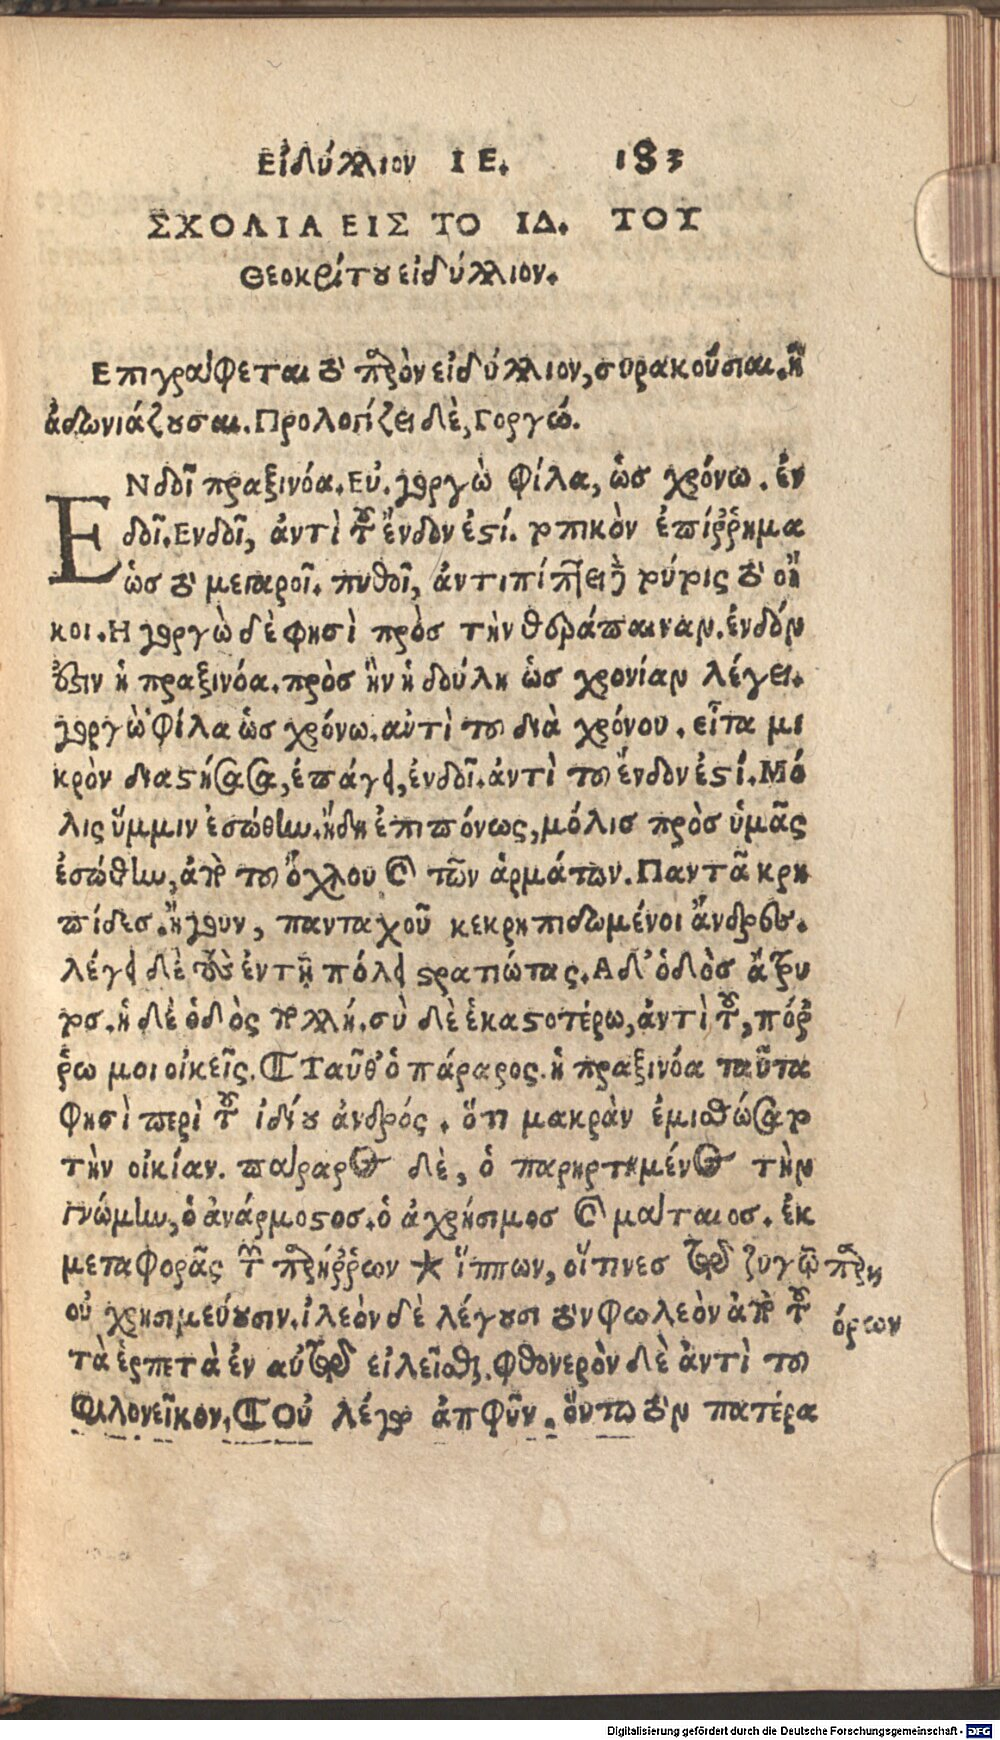 Εἰδύλλιον ΙΕ. 183
ΣΧΟΛΙΑ ΕΙΣ ΤΟ ΙΔ. ΤΟΥ
Θεοκρίτου εἰδύλλιον.
Επιγράφεται τὸ παρὸν εἰδύλλιον, συρακούσιαι. ἢ
ἀδωνιάζουσαι. Προλογίζει δὲ, Γοργώ.
ΕΝδοῖ πραξινόα. Εὐ. γοργὼ φίλα, ὡσ χρόνω. ἐν
δοῖ. Ενδοῖ, ἀντὶ τοῦ ἔνδον ἐστί. τοπικὸν ἐπίῤῥημα
ὡσ τὸ μεγαροῖ. πυθοῖ, ἀντιπίπτει τούτοις τὸ οἴ
κοι. Η γοργὼ δὲ φησὶ πρὸσ τὴν θεράπαιναν. ἔνδον
ἐστιν ἡ πραξινόα. πρὸσ ἣν ἡ δούλη ὡσ χρονίαν λέγει.
γοργὼ φίλα ὡσ χρόνω. αὐτὶ τοῦ διὰ χρόνου. εἶτα μι
κρὸν διαστήσασα, ἐπάγει, ἐνδοῖ. ἀντὶ τοῦ ἔνδον ἐστί. Μό
λις ὔμμιν ἐσώθην. ἤδη ἐπιπόνως, μόλισ πρὸσ ὑμᾶς
ἐσώθην, ἀπὸ τοῦ ὄχλου καὶ τῶν ἁρμάτων. Παντᾶ κρη
πίδεσ. ἤγουν, πανταχοῦ κεκρηπιδωμένοι ἄνδρες.
λέγει δὲ τοὺς ἐν τῇ πόλει στρατιώτας. Αδ' ὁδὸσ ἄτρυ
τος. ἡ δὲ ὁδὸς πολλή. σὺ δὲ ἑκαστοτέρω, ἀντὶ τοῦ, πόῤ
ῥω μοι οἰκεῖς. ¶ Ταῦθ' ὁ πάραρος. ἡ πραξινόα ταῦτα
φησὶ περὶ τοῦ ἰδίου ἀνδρός. ὅτι μακρὰν ἐμισθώσατο
τὴν οἰκίαν. πάραρος δὲ, ὁ παρηρτημένος τὴν
γνώμην, ὁ ἀνάρμοστοσ. ὁ ἀχρήσιμοσ καὶ μάταιοσ. ἐκ
μεταφορᾶς τῶν παρήῤῥων * ἵππων, οἵτινεσ ὑπὸ ζυγῶ παρη
οὐ χρησιμεύουσιν. ἰλεὸν δὲ λέγουσι τὸν φωλεὸν ἀπὸ τοῦ όρεων
τὰ ἑρπετὰ ἐν αὐτῷ εἰλεῖσθαι. φθονερὸν δὲ ἀντὶ τοῦ
φιλονεῖκον. ¶ Οὐ λέγω ἀπφῦν. ὅυτω τὸν πατέρα
Digitalisierung gefördert durch die Deutsche Forschungsgemeinschaft - DFG